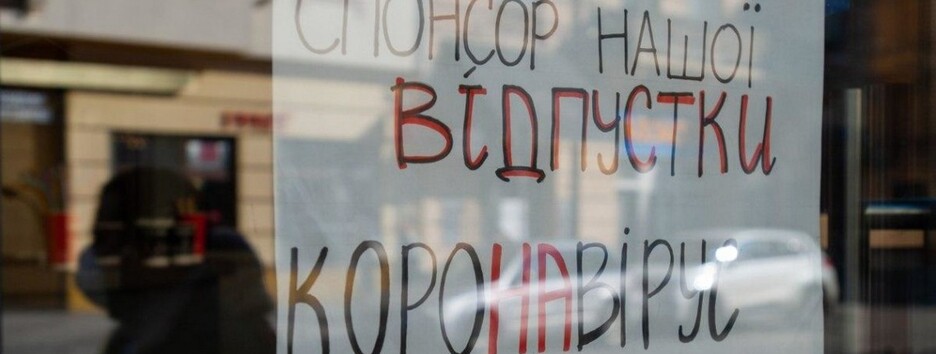 СПОНСОР НАШОЇ
ВІДПУСТКИ
КОРОНАВІРУС